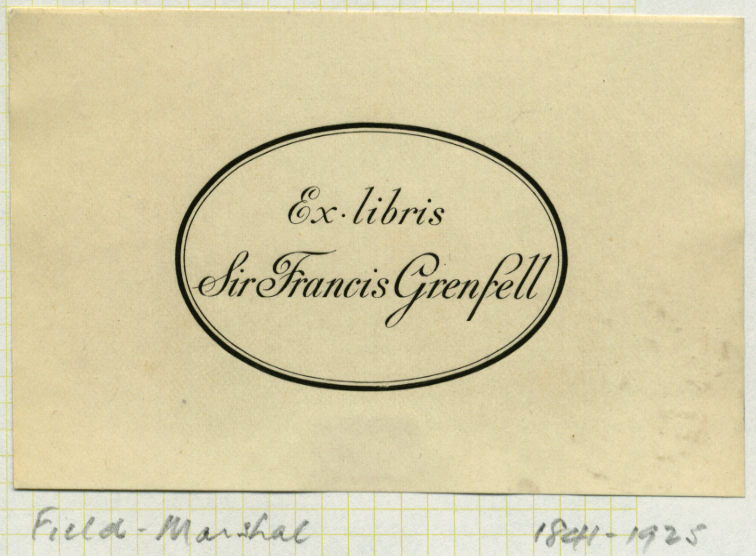 Ex·libris
Sir Francis Grenfell
Field-Marshal 1841-1925